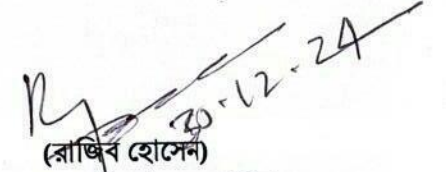 30.12.24
(রাজিব হোসেন)